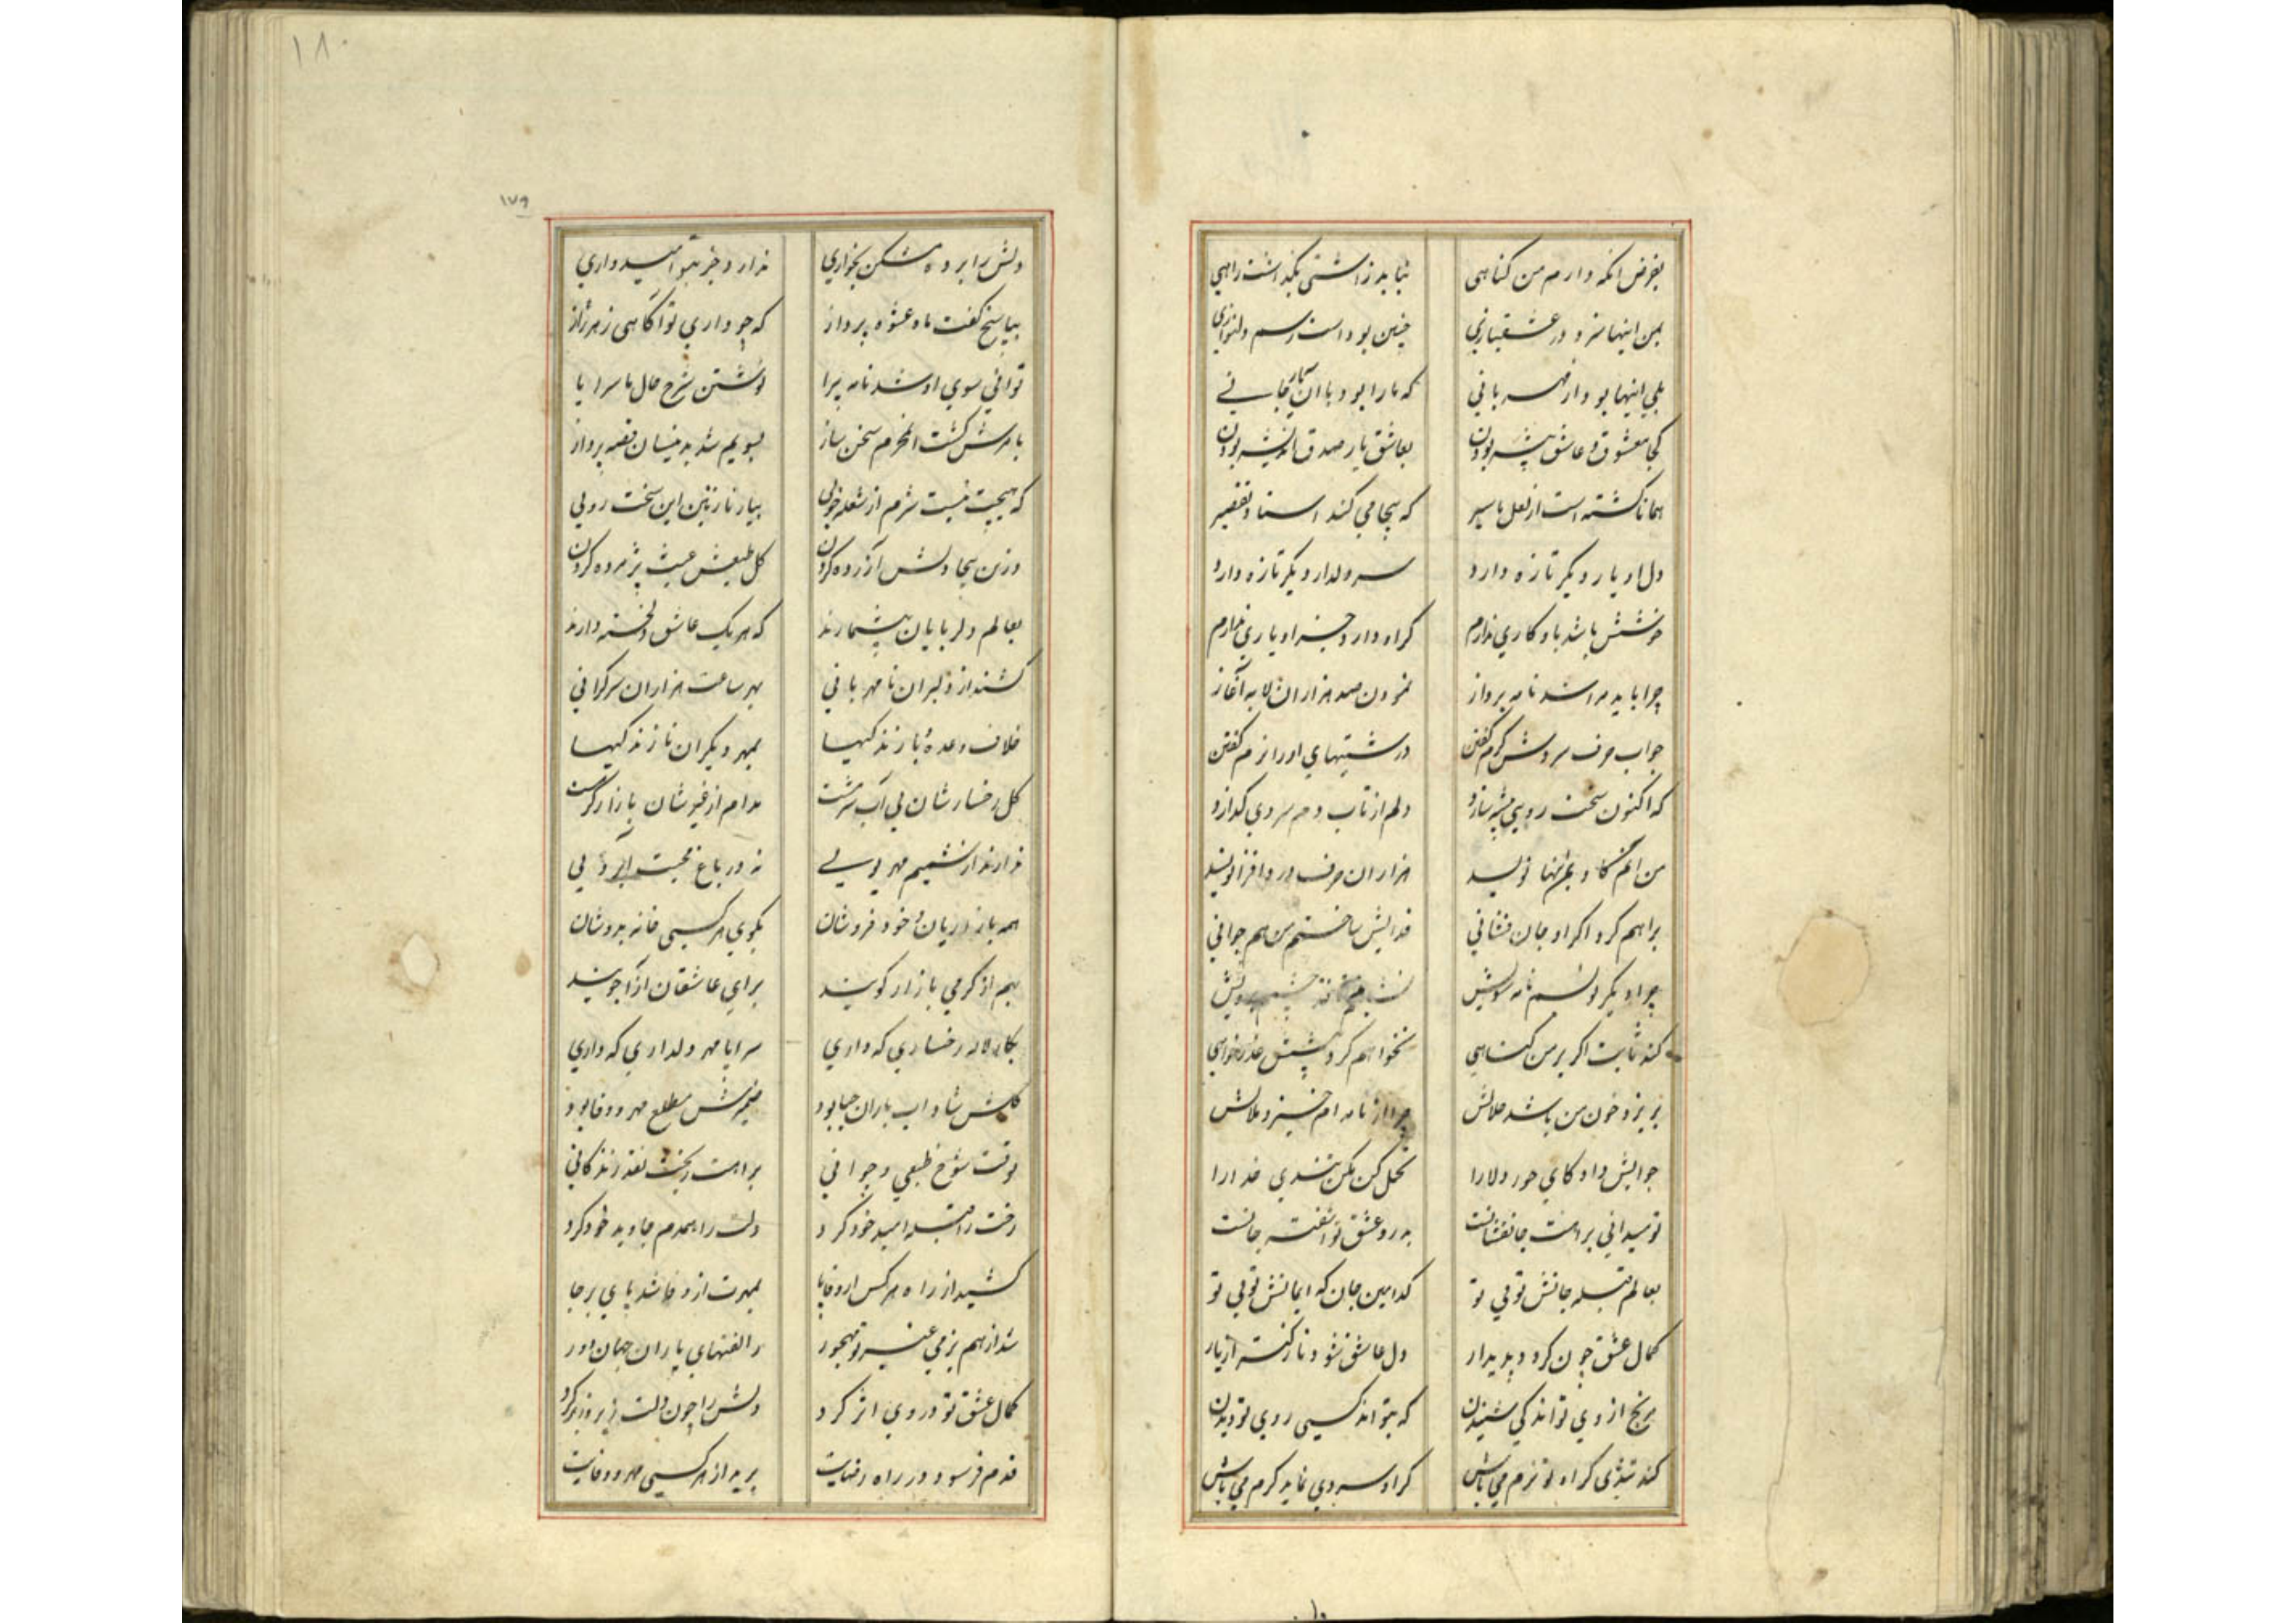 بفرض انکه دارم من کناهی نباید زاشتی بکذاشت راهی
بمن اینها سزد در عشقبازی چنین بود است رسم دلنوازی
بلی اینها بود از مهربانی که مارا بود با ان یار جانی
کجا معشوق و عاشق پیشه بودن بعاشق یار صدق اندیشه بودن
همانا کشته است از نعل ما سیر که بیجا می کند اسناد تقصیر
دل او یار دیکر تازه دارد سر دلدار دیکر تازه دارد
خوشش باشد باو کاری ندارم کر او دارد جز او یاری ندارم
چرا باید مرا شد نامه پرداز نمودن صد هزاران لابه آغاز
جواب حرف سردش کرم کفتن درشتیهای اورا نرم کفتن
که اکنون سخت رویی پیشه سازد دلم از تاب دم سردی کدازد
من انم کاو بمن اینها نویسد هزاران حرف درد افزا نویسد
براهم کرد اکر او جان فشانی فدایش ساختم من هم جوانی
چرا دیکر نویسم نامه سویش
کند ثابت اکر بر من کناهی نخواهم کرد پیشش عذرخواهی
بریزد خون من باشد حلالش چرا از نامه ام خیزد ملالش
جوابش داد کای حور دلارا تحمل کن مکن تندی خدارا
تو میدانی براهت جانفشانست بدرد عشق تو اشفته جانست
بعالم قبله جانش تویی تو کدامین جان که ایمانش تویی تو
کمال عشق چون کردد پدیدار دل عاشق شود نازک‌تر از یار
برنج از وی تواند کی شنیدن که بتواند کسی روی تو دیدن
کند تندی کر او تو نرم می باش کر او سردی نماید کرم می باش
۱۸۰
۱۷۹
دلش را برده مشکن بخواری ندارد جز بتو امیدواری
بپاسخ کفت ماه عشوه پرداز که چو داری تو آکاهی ز هر راز
توانی سوی او شد نامه پیرا نوشتن شرح حال ما سراپا
بامرش کشت انمحرم سخن ساز بسویم شد بدینسان قصه پرداز
که هیچت نیست شرم از شعله خویی بیار نازنین این سخت رویی
وزین بیجا دلش آزرده کردن کل طبعش عبث پژمرده کردن
بعالم دلربایان بیشمارند که هر یک عاشق دلخسته دارند
کشند از دلبران نامهربانی بهر ساعت هزاران سرکرانی
خلاف وعده یا رندکیها بمهر دیکران نازندکیها
کل رخسارشان بی آب شرمست مدام از غیرشان بازار کرمست
ندارند از نسیم مهر بویی نه در باغ محبت ابرویی
همه بازاریان و خود فروشان بکوی هر کسی خانه بدوشان
بهم از کرمی بازار کویند برای عاشقان ازار جویند
بکار لاله رخساری که داری سراپا مهر دلداری که داری
کلش شاداب باران حیا بود ضمیرش مطلع مهر و وفا بود
بوقت شوخ طبعی و جوانی براهت ریخت نقد زندکانی
رخت را قبله امید خود کرد دلت را همدم جاوید خود کرد
کشید از راه هر کس از وفا پا بمهرت از وفا شد پای برجا
شد از هم بزمی غیر تو مهجور ز الفتهای یاران جهان دور
کمال عشق تو در وی اثر کرد
قدم فرسود در راه رضایت برید از هر کسی مهر و وفایت